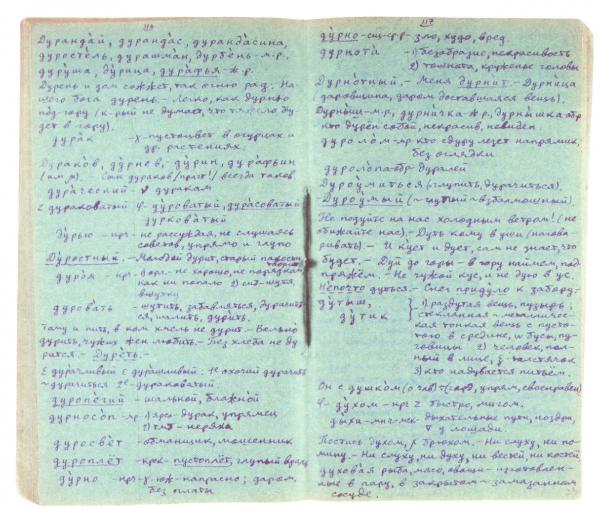 116
Дурандáй, дурандáс, дурандáсина,
дуростéль, дурашмáн, дурбéнь-м-р.
дурýша, дýрица, дурáфья-ж-р.
Дурень и дом сожжет, так огню рад. На
шего бога дурень.- Легко, как дурню
под гору (к-рый не думает, что тяжело бу
дет в гору).
дурáк -х-пустоцвет в огурцах и
др. растениях.
Дуракóв, дýрнев, дýрин, дурáфьин
всегда таков
дурáческий- дуракам
дураковатый дуровáтый, дурасовáтый
дурковáтый
дýрью -нрч- не рассуждая, не слушаясь
советов, упрямо и глупо
Дýростный.- Молодой дурит, старый
дуром -нрч- не хорошо, не порядком
как ни попало 2)
шутки
дуровáть -шутить, забавляться, дурачить
ся, шалить, дурить.
Тому и пить, в ком хмель не дурит.- Вольно
дурить, чужих жен любить.- Без хлеба не ду
рится.- Дурéть.-
дурачливый охочий дурачить
дурачиться дураковатый
дуропéгий -шальной, блажной
дурносóп -дурак, упрямец
неряха
дуросвéт -обманщик, мошенник
дуроплёт -пустоплёт, глупый враль
дýрно -нрч- -напрасно; даром,
без платы
117
дýрно-сщ-ср-р - зло, худо, вред
дурнотá -1) безобразие, некрасивость
2) тошнота, круженье головы
Дурнóтный.- Меня дурнит.- Дурнúца
даровщина, даром доставшаяся вещь).
Дурныш-м-р, дурнúчка-ж-р, дурнышка-обр
кто дурён собой, некрасив, невиден
дуролóм-мр кто сдуру лезет напрямик,
без оглядки
дуролопа-обр-дуралей
Дурóумиться (-глупить, дурачиться).
Дуроýмный
Не подуйте на нас холодным ветром! (не
обижайте нас).- Дуть кому в уши (нагова
ривать).- И кует и дует, сам не знает, что
будет.- Дуй до горы- в гору наймем, под-
пряжём.- Не чужой кус, и не дую в ус.
дуться.- Снег придуло к забору.-
дýтыш,
дýтик -1) раздутая вещь, пузырь
стеклянная - металличес-
кая тонкая вещь с пусто-
тою в средине, бусы, пу-
говицы 2) человек, пол-
ный в лице, толстячок
3) кто надувается питьём.
Он с душкóм
дýхом -нрч- 2 быстро, мигом.
дыхи-мнч-мск- дыхательные пути, ноздри,
у лошади
Постись духом, а не брюхом.- Ни слуху, ни по-
мину.- Ни слуху, ни духу, ни вестей, ни костей
духовая рыба, мясо, овощи- приготовлен-
ные в пару, в закрытом - замазанном
сосуде.